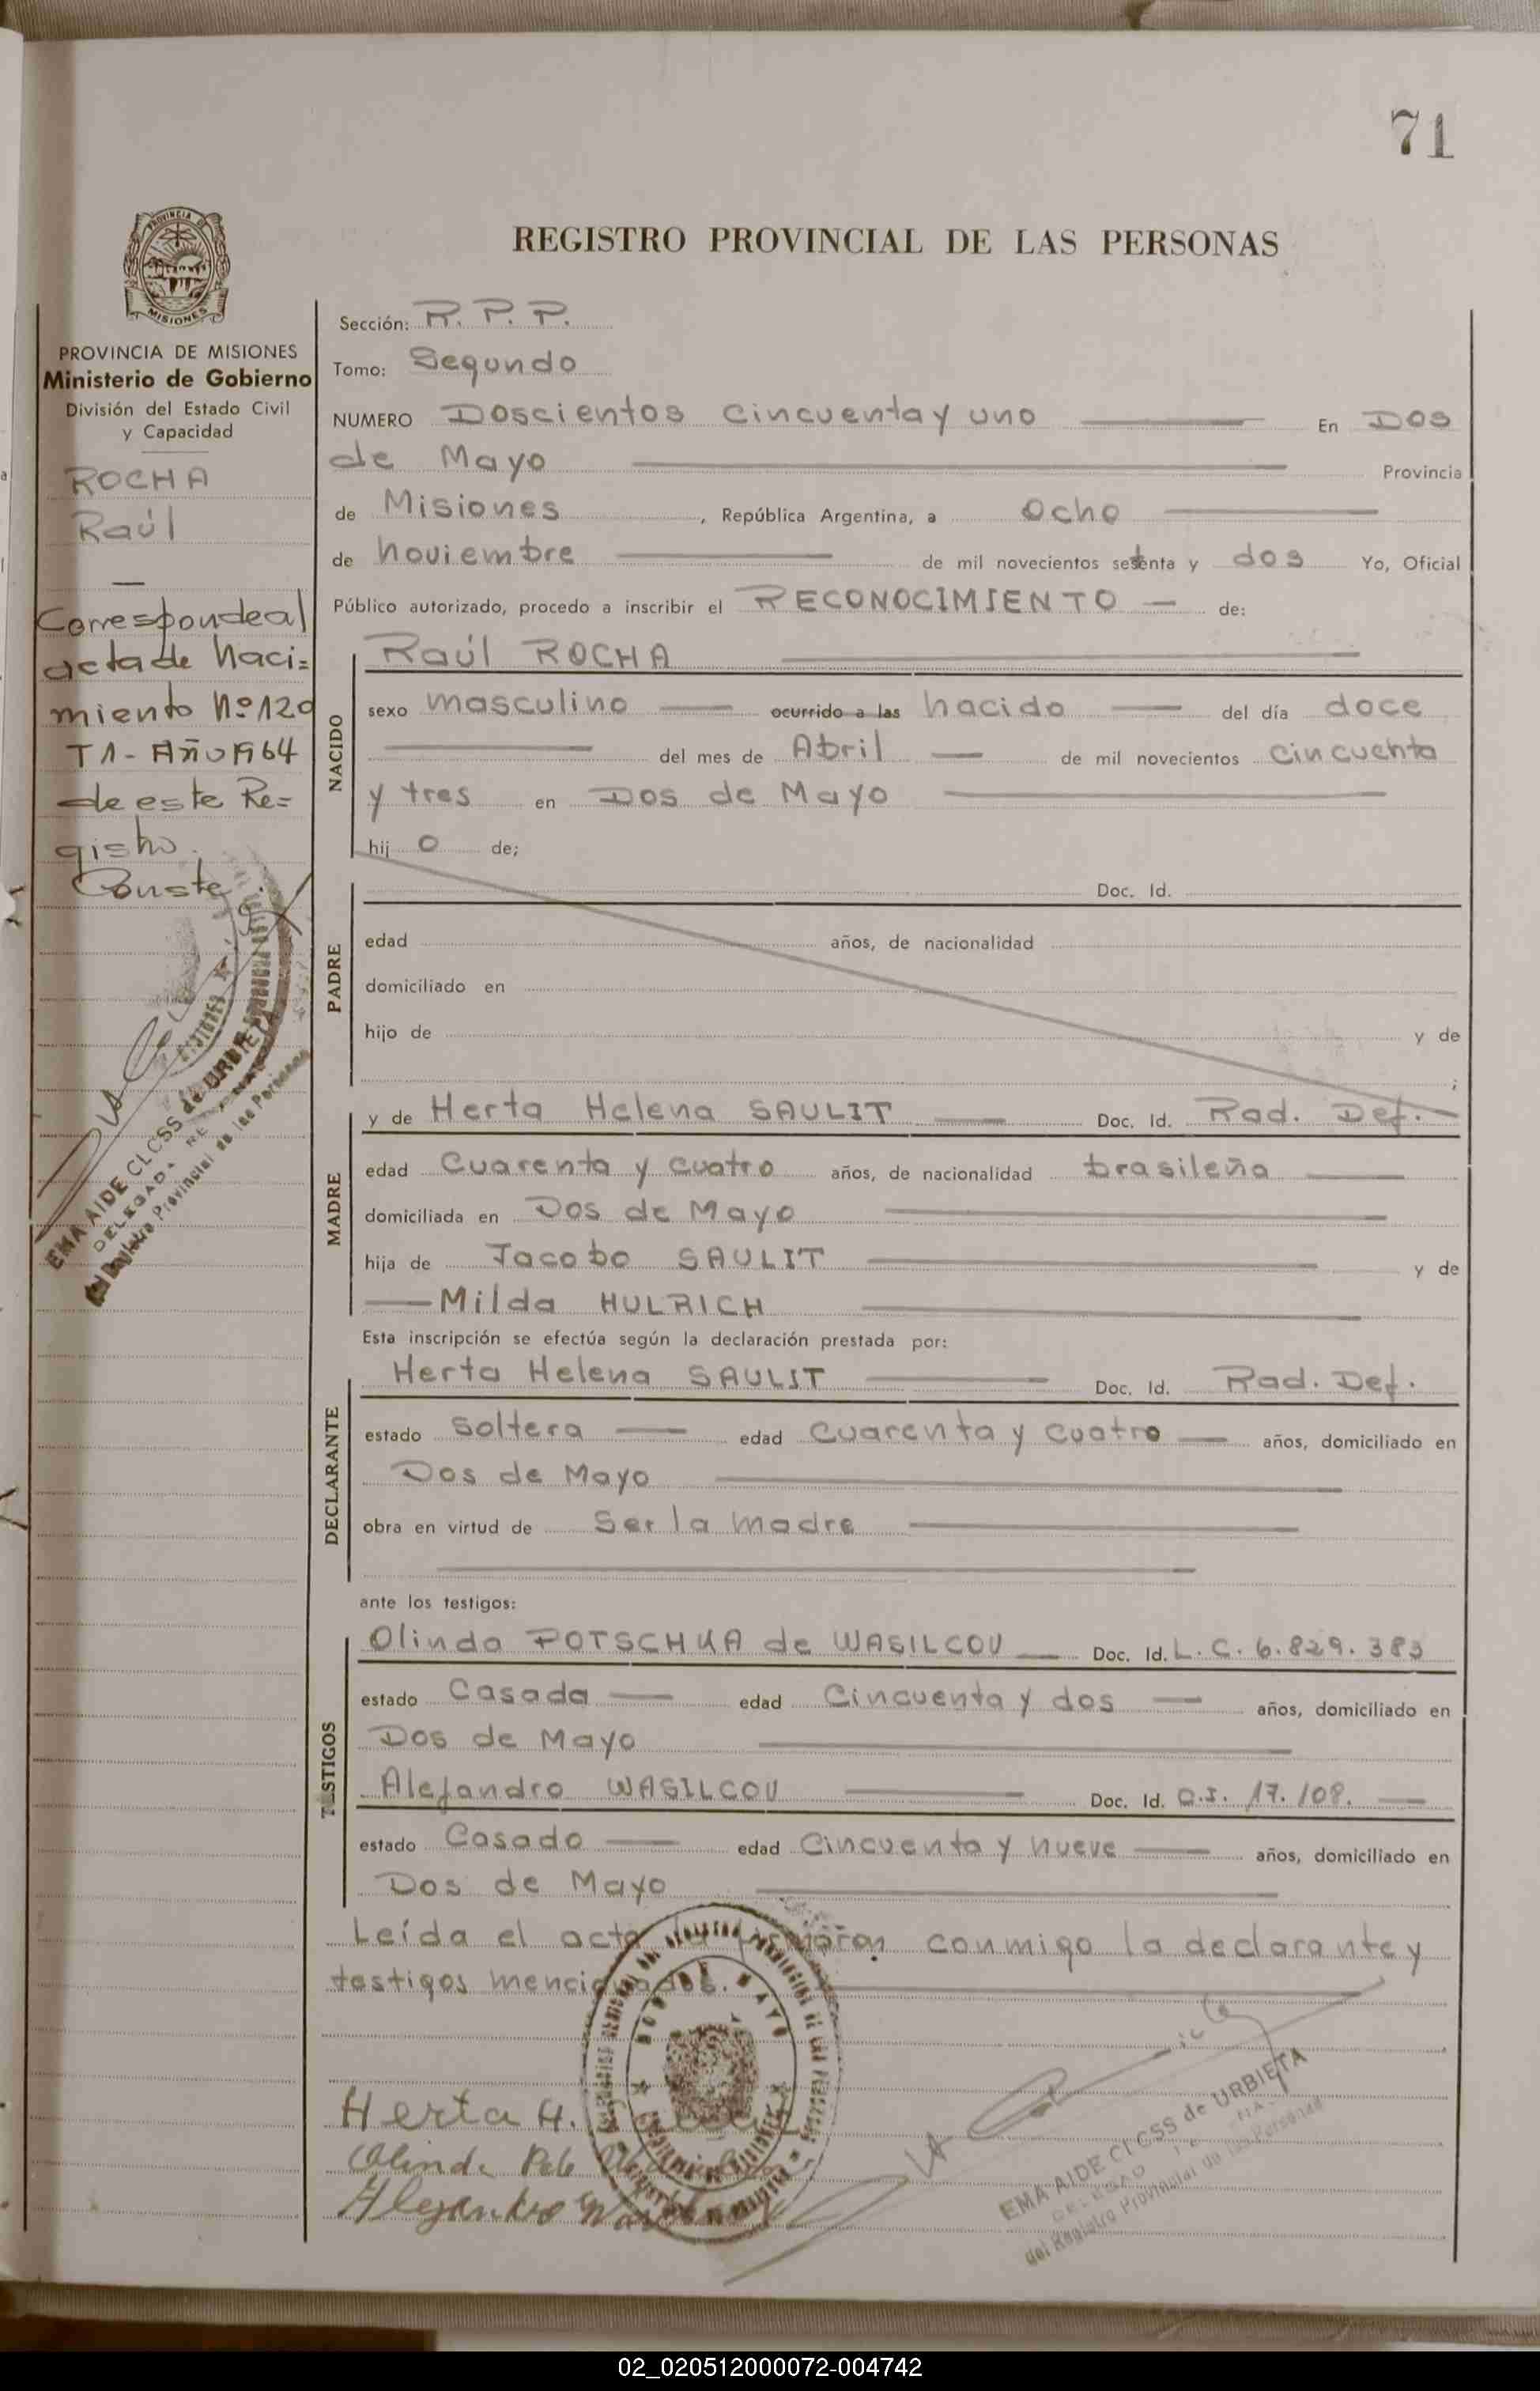 71
REGISTRO PROVINCIAL DE LAS PERSONAS
PROVINCIA DE
MISIONES
PROVINCIA DE MISIONES
Ministerio de Gobierno
División del Estado Civil
y Capacidad
ROCHA
Raúl
Corresponde al
acta de naci=
miento Nº 120
T 1 - Año 1964
de este Re=
gistro.
Conste.
EMA AIDE CLOSS de URBIETA
DELEGADA
del Registro Provincial de las Personas
Sección: R. P. P.
Tomo: Segundo
NUMERO Doscientos cincuenta y uno En Dos
de Mayo Provincia
de Misiones, República Argentina, a ocho
de noviembre de mil novecientos setenta y dos Yo, Oficial
Público autorizado, procedo a inscribir el RECONOCIMIENTO — de:
NACIDO
Raúl ROCHA
sexo masculino — ocurrido a las nacido — del día doce
del mes de Abril — de mil novecientos cincuenta
y tres en Dos de Mayo
hijo de;
PADRE
Doc. Id.
edad años, de nacionalidad
domiciliado en
hijo de y de
;
MADRE
y de Herta Helena SAULIT — Doc. Id. Rad. Def.
edad Cuarenta y cuatro años, de nacionalidad brasileña
domiciliada en Dos de Mayo
hija de Jacobo SAULIT y de
— Milda HULRICH
Esta inscripción se efectúa según la declaración prestada por:
DECLARANTE
Herta Helena SAULIT Doc. Id. Rad. Def.
estado Soltera — edad cuarenta y cuatro — años, domiciliado en
Dos de Mayo
obra en virtud de Ser la madre
ante los testigos:
TESTIGOS
Olinda POTSCHKA de WASILCOV — Doc. Id. L. C. 6.829.383
estado Casada — edad Cincuenta y dos — años, domiciliado en
Dos de Mayo
Alejandro WASILCOV Doc. Id. C.I. 17.108. —
estado Casado — edad Cincuenta y nueve — años, domiciliado en
Dos de Mayo
Leída el acta la firmaron conmigo la declarante y
testigos mencionados.
DOS DE MAYO
Herta H.
Olinda P. de
Alejandro
EMA AIDE CLOSS de URBIETA
DELEGADA
del Registro Provincial de las Personas
02_020512000072-004742